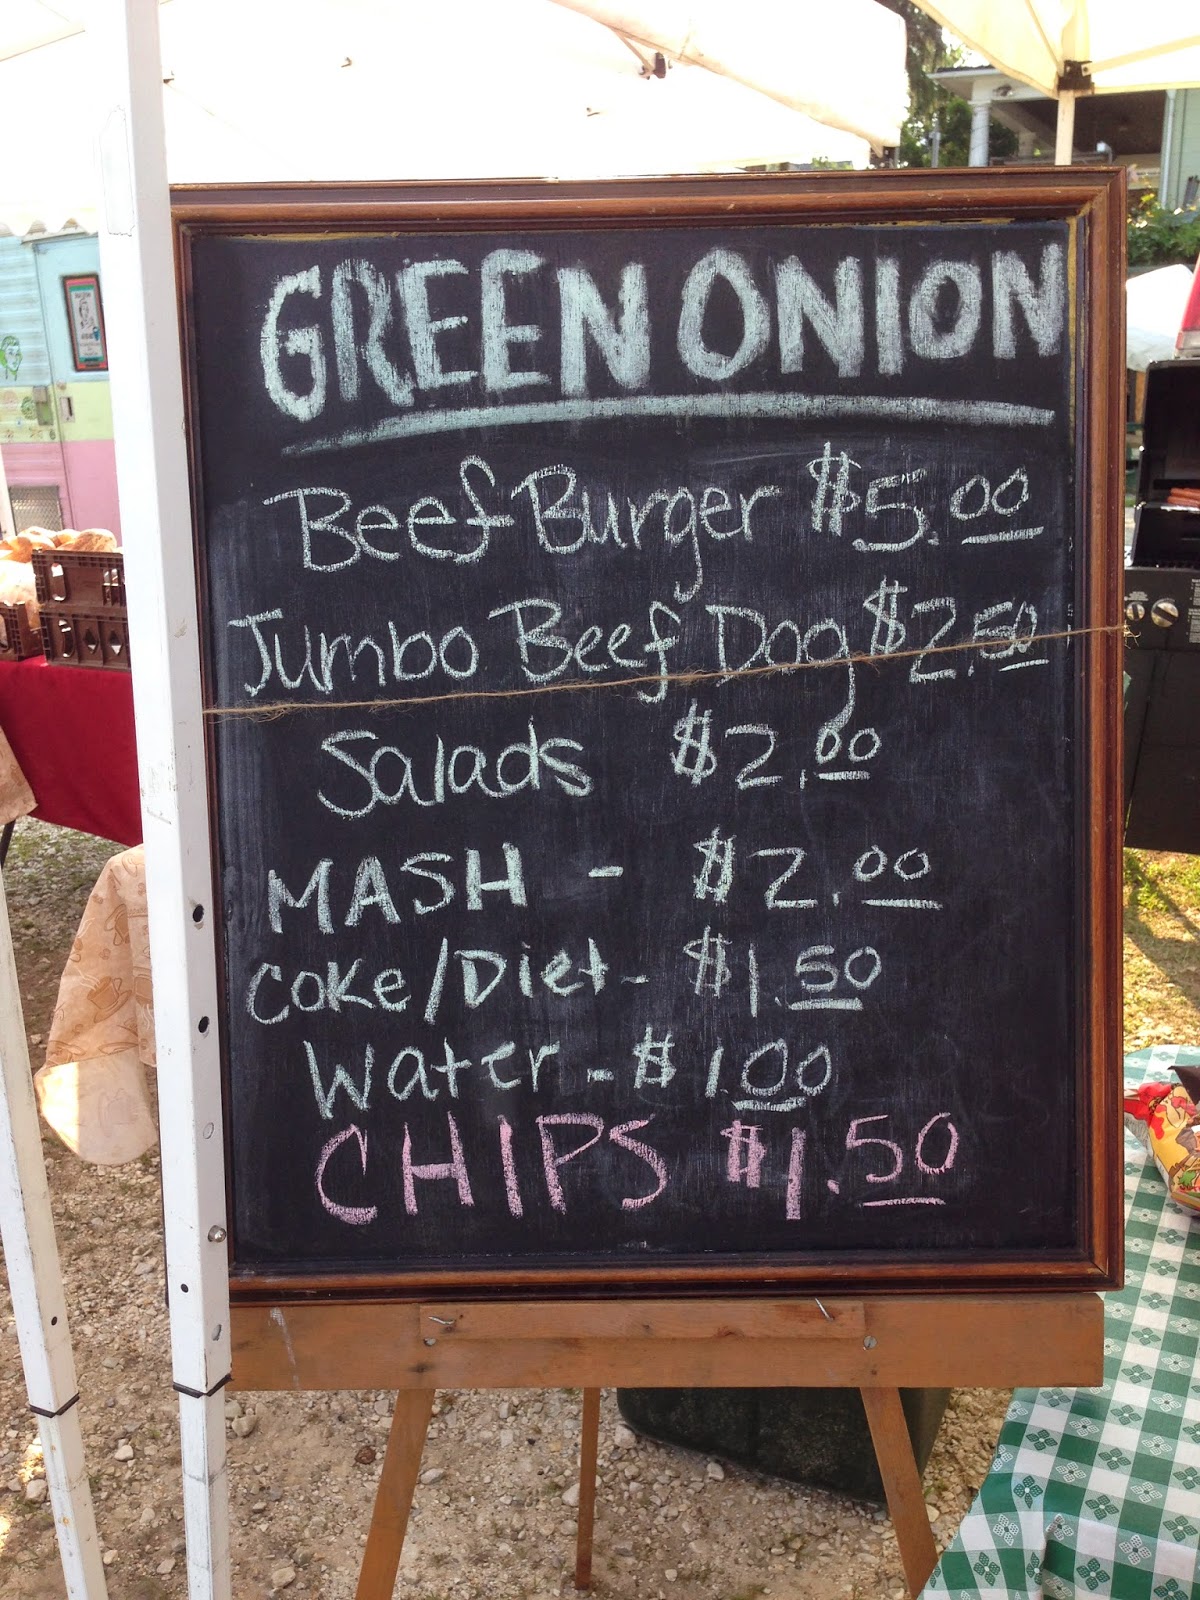 GREEN ONION
Beef Burger $5.00
Jumbo Beef Dog $2.50
Salads $2.00
MASH - $2.00
COKE/Diet - $1.50
Water - $1.00
CHIPS $1.50